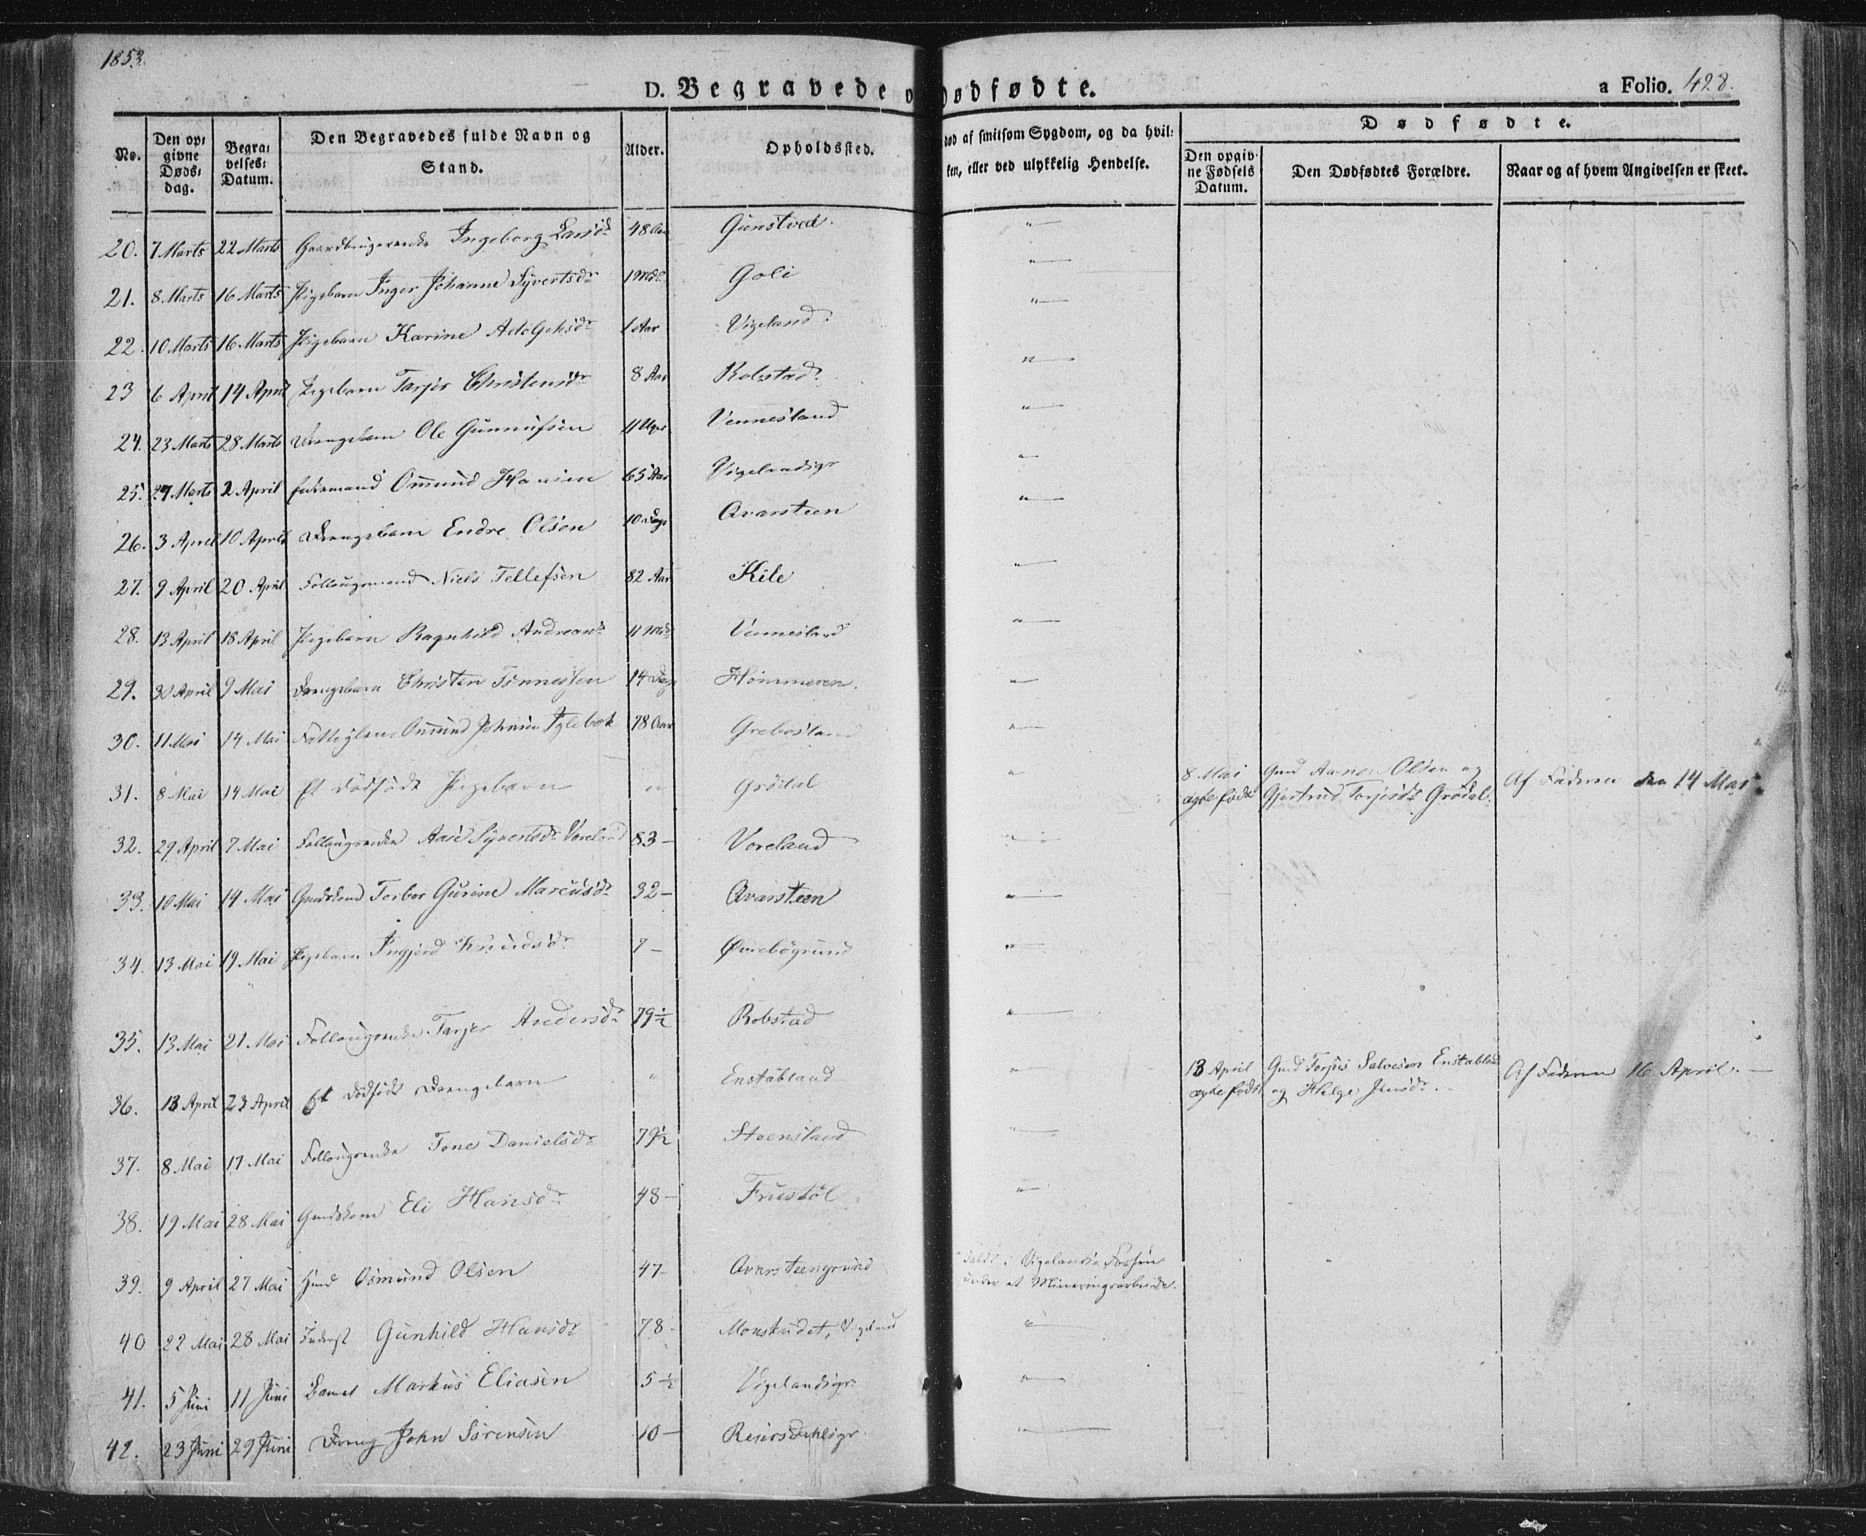 1853.
D. Begravede o Dødfødte.
a Folio. 428.
No. | Den opgivne Dødsdag. | Begravelses-Datum. | Den Begravedes fulde Navn og Stand. | Alder. | Opholdssted. | død af smitsom Sygdom, og da hvilken, eller ved ulykkelig Hendelse. | Dødfødte. Den opgivne Fødsels Datum. | Den Dødfødtes Forældre. | Naar og af hvem Angivelsen er skeet.
20. 7 Marts 22 Marts Gaardbrugerenke Ingeborg Larsdr 48 Aar "
21. 8 Marts 16 Marts Pigebarn Inger Johanne Syvertsdr 1 Mdr Goli "
22. 10 Marts 16 Marts Pigebarn Karine Adolphsdr 1 Aar Vigeland. "
23 6 April 14 April Pigebarn Tarjer Christensdr 8 Aar Robstad. "
24. 23 Marts 28 Marts Drengebarn Ole Gunnufsen 11 Uger Vennesland "
25. 27 Marts 2 April Omund Hansen 65 Aar Vigelandsgr "
26. 3 April 10 April Drengebarn Endre Olsen 10 Dage Qvarsteen "
27. 9 April 20 April Follougsmand Niels Tellefsen 82 Aar Kile "
28. 13 April 18 April Pigebarn Ragnhild Andreasdr 11 Mdr Vennesland "
29. 30 April 9 Mai Drengebarn Christen Tønnessen 14 Dag Hommeren. "
30. 11 Mai 14 Mai Omund Johnsen 78 Aar Grebesland "
31. 8 Mai 14 Mai Et dødfødt Pigebarn " Grødal " 8 Mai Gmd Aanon Olsen og Af Faderen den 14 Mai
ægte født Gjertrud Torjesdr Grødal.
32. 29 April 7 Mai Follougsenke Aase Syvertsdr Voreland 83 – Voreland "
33. 10 Mai 14 Mai Gmdskone Torbor Gurine Marcusdr 32 – Qvarsteen "
34. 13 Mai 19 Mai Pigebarn Ingjerd Knudsdr 7 – Øvrebøgrund "
35. 13 Mai 21 Mai Follougsenke Tarjer Andersdr 79½ Robstad "
36. 13 April 23 April Et dødfødt Drengebarn " Enstabland " 13 April Gmd Torjus Salvesen Enstabland Af Faderen 16 April. –
ægte født og Helge Jensdr. –
37. 8 Mai 17 Mai Follougsenke Tone Danielsdr 79½ Steensland "
38. 19 Mai 28 Mai Gmdskone Eli Hansdr 48 – Frustøl "
39. 9 April 27 Mai Hmd Osmund Olsen 47 – Qvarsteengrund Faldt i Vigelands Fossen
under et Mineringsarbeide.
40 22 Mai 28 Mai Inderst Gunhild Hansdr 78 – Monskudet, Vigeland "
41. 5 Juni 11 Juni Barnet Markus Eliasen 5½ Vigelandsgr. "
42. 23 Juni 29 Juni Dreng John Sørensen 10 – Reiersdahlsgr. "